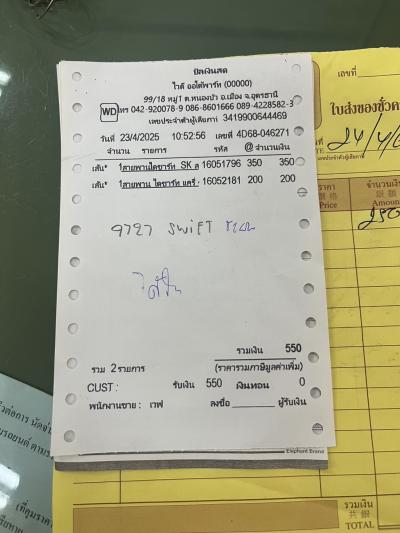 บิลเงินสด
ไวดี ออโต้พาร์ท (00000)
99/18 หมู่1 ต.หนองบัว อ.เมือง จ.อุดรธานี
WD โทร 042-920078-9 086-8601666 089-4228582-3
เลขประจำตัวผู้เสียภาษี 3419900644469
วันที่ 23/4/2025 10:52:56 เลขที่ 4D68-046271
จำนวน รายการ รหัส @ จำนวนเงิน
เส้น* 1สายพานไดชาร์ท SK ส 16051796 350 350
เส้น* 1สายพาน ไดชาร์ท แคร์ 16052181 200 200
9727 SWIFT
รวมเงิน 550
รวม 2รายการ (ราคารวมภาษีมูลค่าเพิ่ม)
CUST : รับเงิน 550 เงินทอน 0
พนักงานขาย : เวฟ ลงชื่อ ผู้รับเงิน
Elephant Brand
เลขที่
ใบส่งของชั่วคร
24/4/6
ราคา จำนวนเงิน
Price Amoun
250
รวมเงิน
共銀
TOTAL